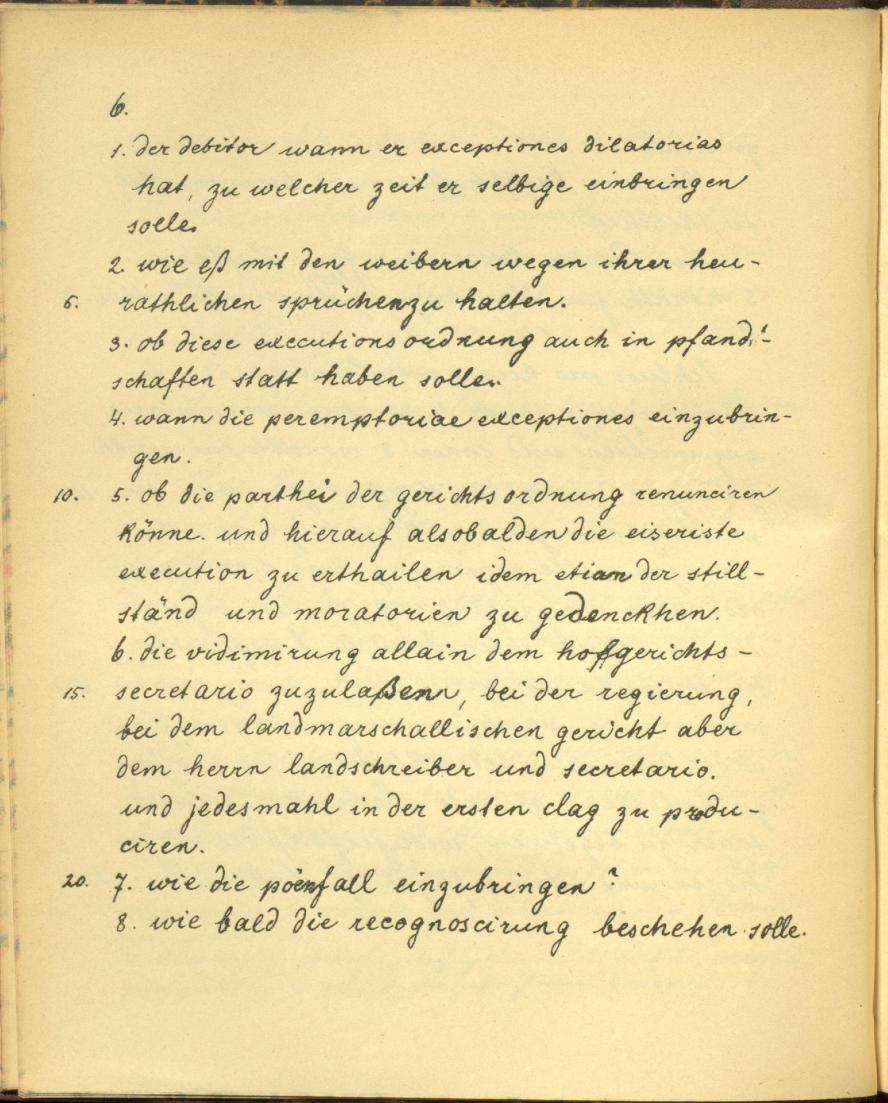 6.
1. der debitor wann er exceptiones dilatorias
hat, zu welcher zeit er selbige einbringen
solle.
2. wie eß mit den weibern wegen ihrer heu-
5. rathlichen sprüchen zu halten.
3. ob diese executions ordnung auch in pfand-
schaften statt haben solle.
4. wann die peremptoriae exceptiones einzubrin-
gen.
10. 5. ob die parthei der gerichtsordnung renunciren
könne. und hierauf alsobalden die eiseriste
execution zu erthailen idem etiam der still-
ständ und moratorien zu gedenckhen.
6. die vidimirung allain dem hofgerichts-
15. secretario zuzulaßenn, bei der regierung,
bei dem landmarschallischen gericht aber
dem herrn landschreiber und secretario.
und jedesmahl in der ersten clag zu produ-
ciren.
20. 7. wie die pöenfall einzubringen?
8. wie bald die recognoscirung beschehen solle.